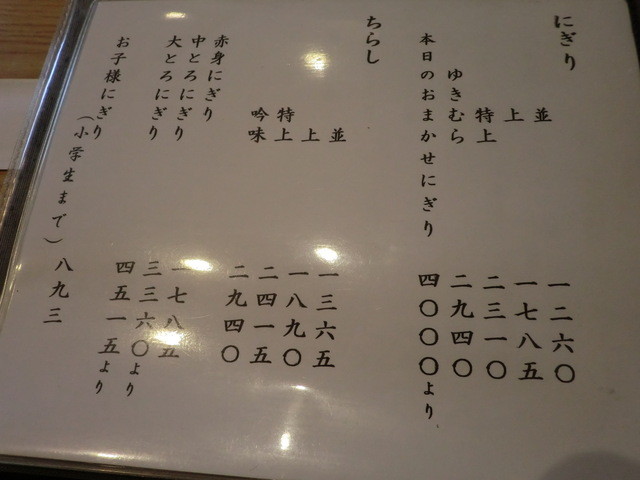 にぎり
並 一二六〇
上 一七八五
特上 二三一〇
ゆきむら 二九四〇
本日のおまかせにぎり 四〇〇〇より
ちらし
並 一三六五
上 一八九〇
特上 二四一五
吟味 二九四〇
赤身にぎり 一七八五
中とろにぎり 三三六〇より
大とろにぎり 四五一五より
お子様にぎり
(小学生まで) 八九三